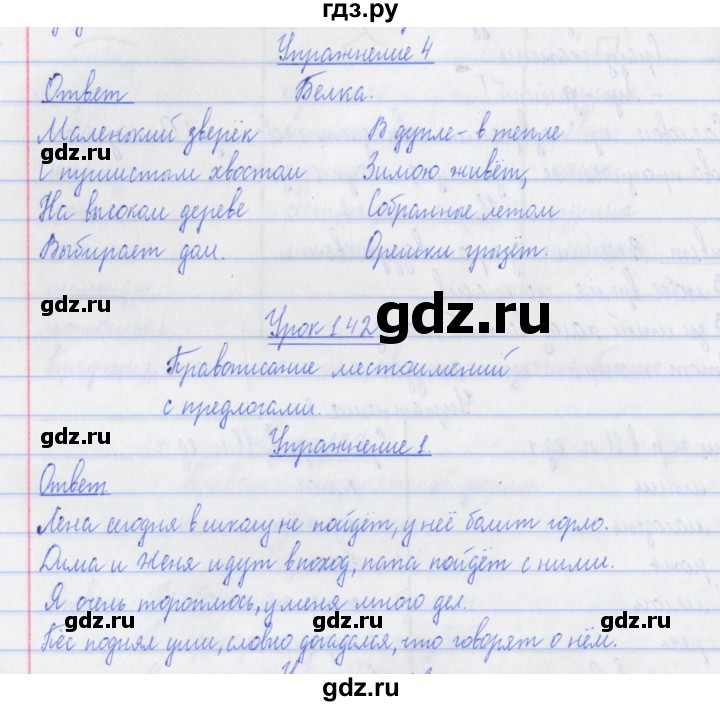 гдз.ру
Упражнение 4
Ответ Белка.
Маленький зверёк В дупле - в тепле
gdz.ru
С пушистым хвостом Зимою живёт,
На высоком дереве Собранные летом
Выбирает дом. Орешки грызёт.
gdz.ru
Урок 142
gdz.ru
Правописание местоимений
с предлогами.
gdz.ru
Упражнение 1.
Ответ
Лена сегодня в школу не пойдёт, у неё болит горло.
Дима и Женя идут в поход, папа пойдёт с ними.
Я очень тороплюсь, у меня много дел.
gdz.ru gdz.ru gdz.ru
Пёс поднял уши, словно догадался, что говорят о нём.
gdz.ru